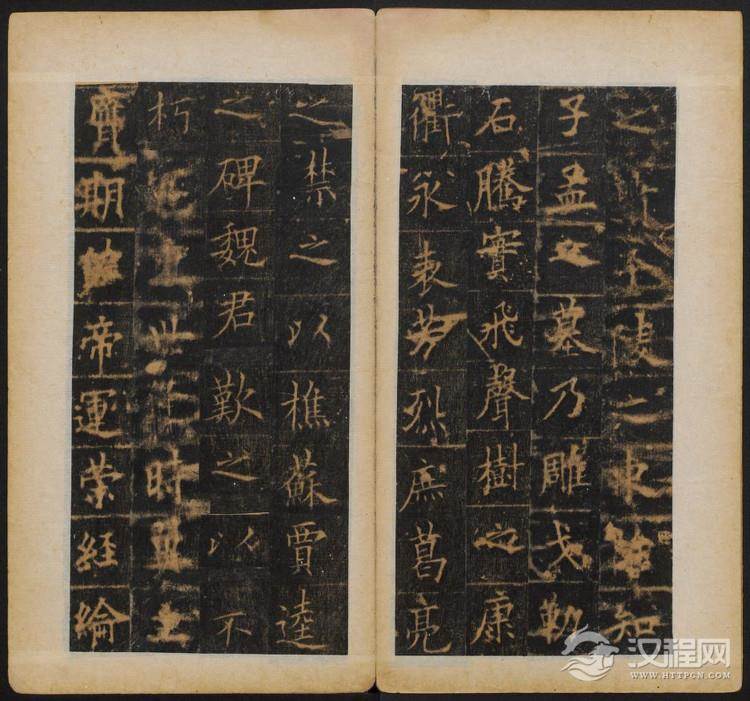 之陵之東知
子孟之墓乃雕戈勒
石騰實飛聲樹之康
衢永表芳烈庶葛亮
之禁之以樵蘇賈逵
之碑魏君歎之以不
朽世時
期帝運榮經綸
汉程网
WWW.HTTPCN.COM